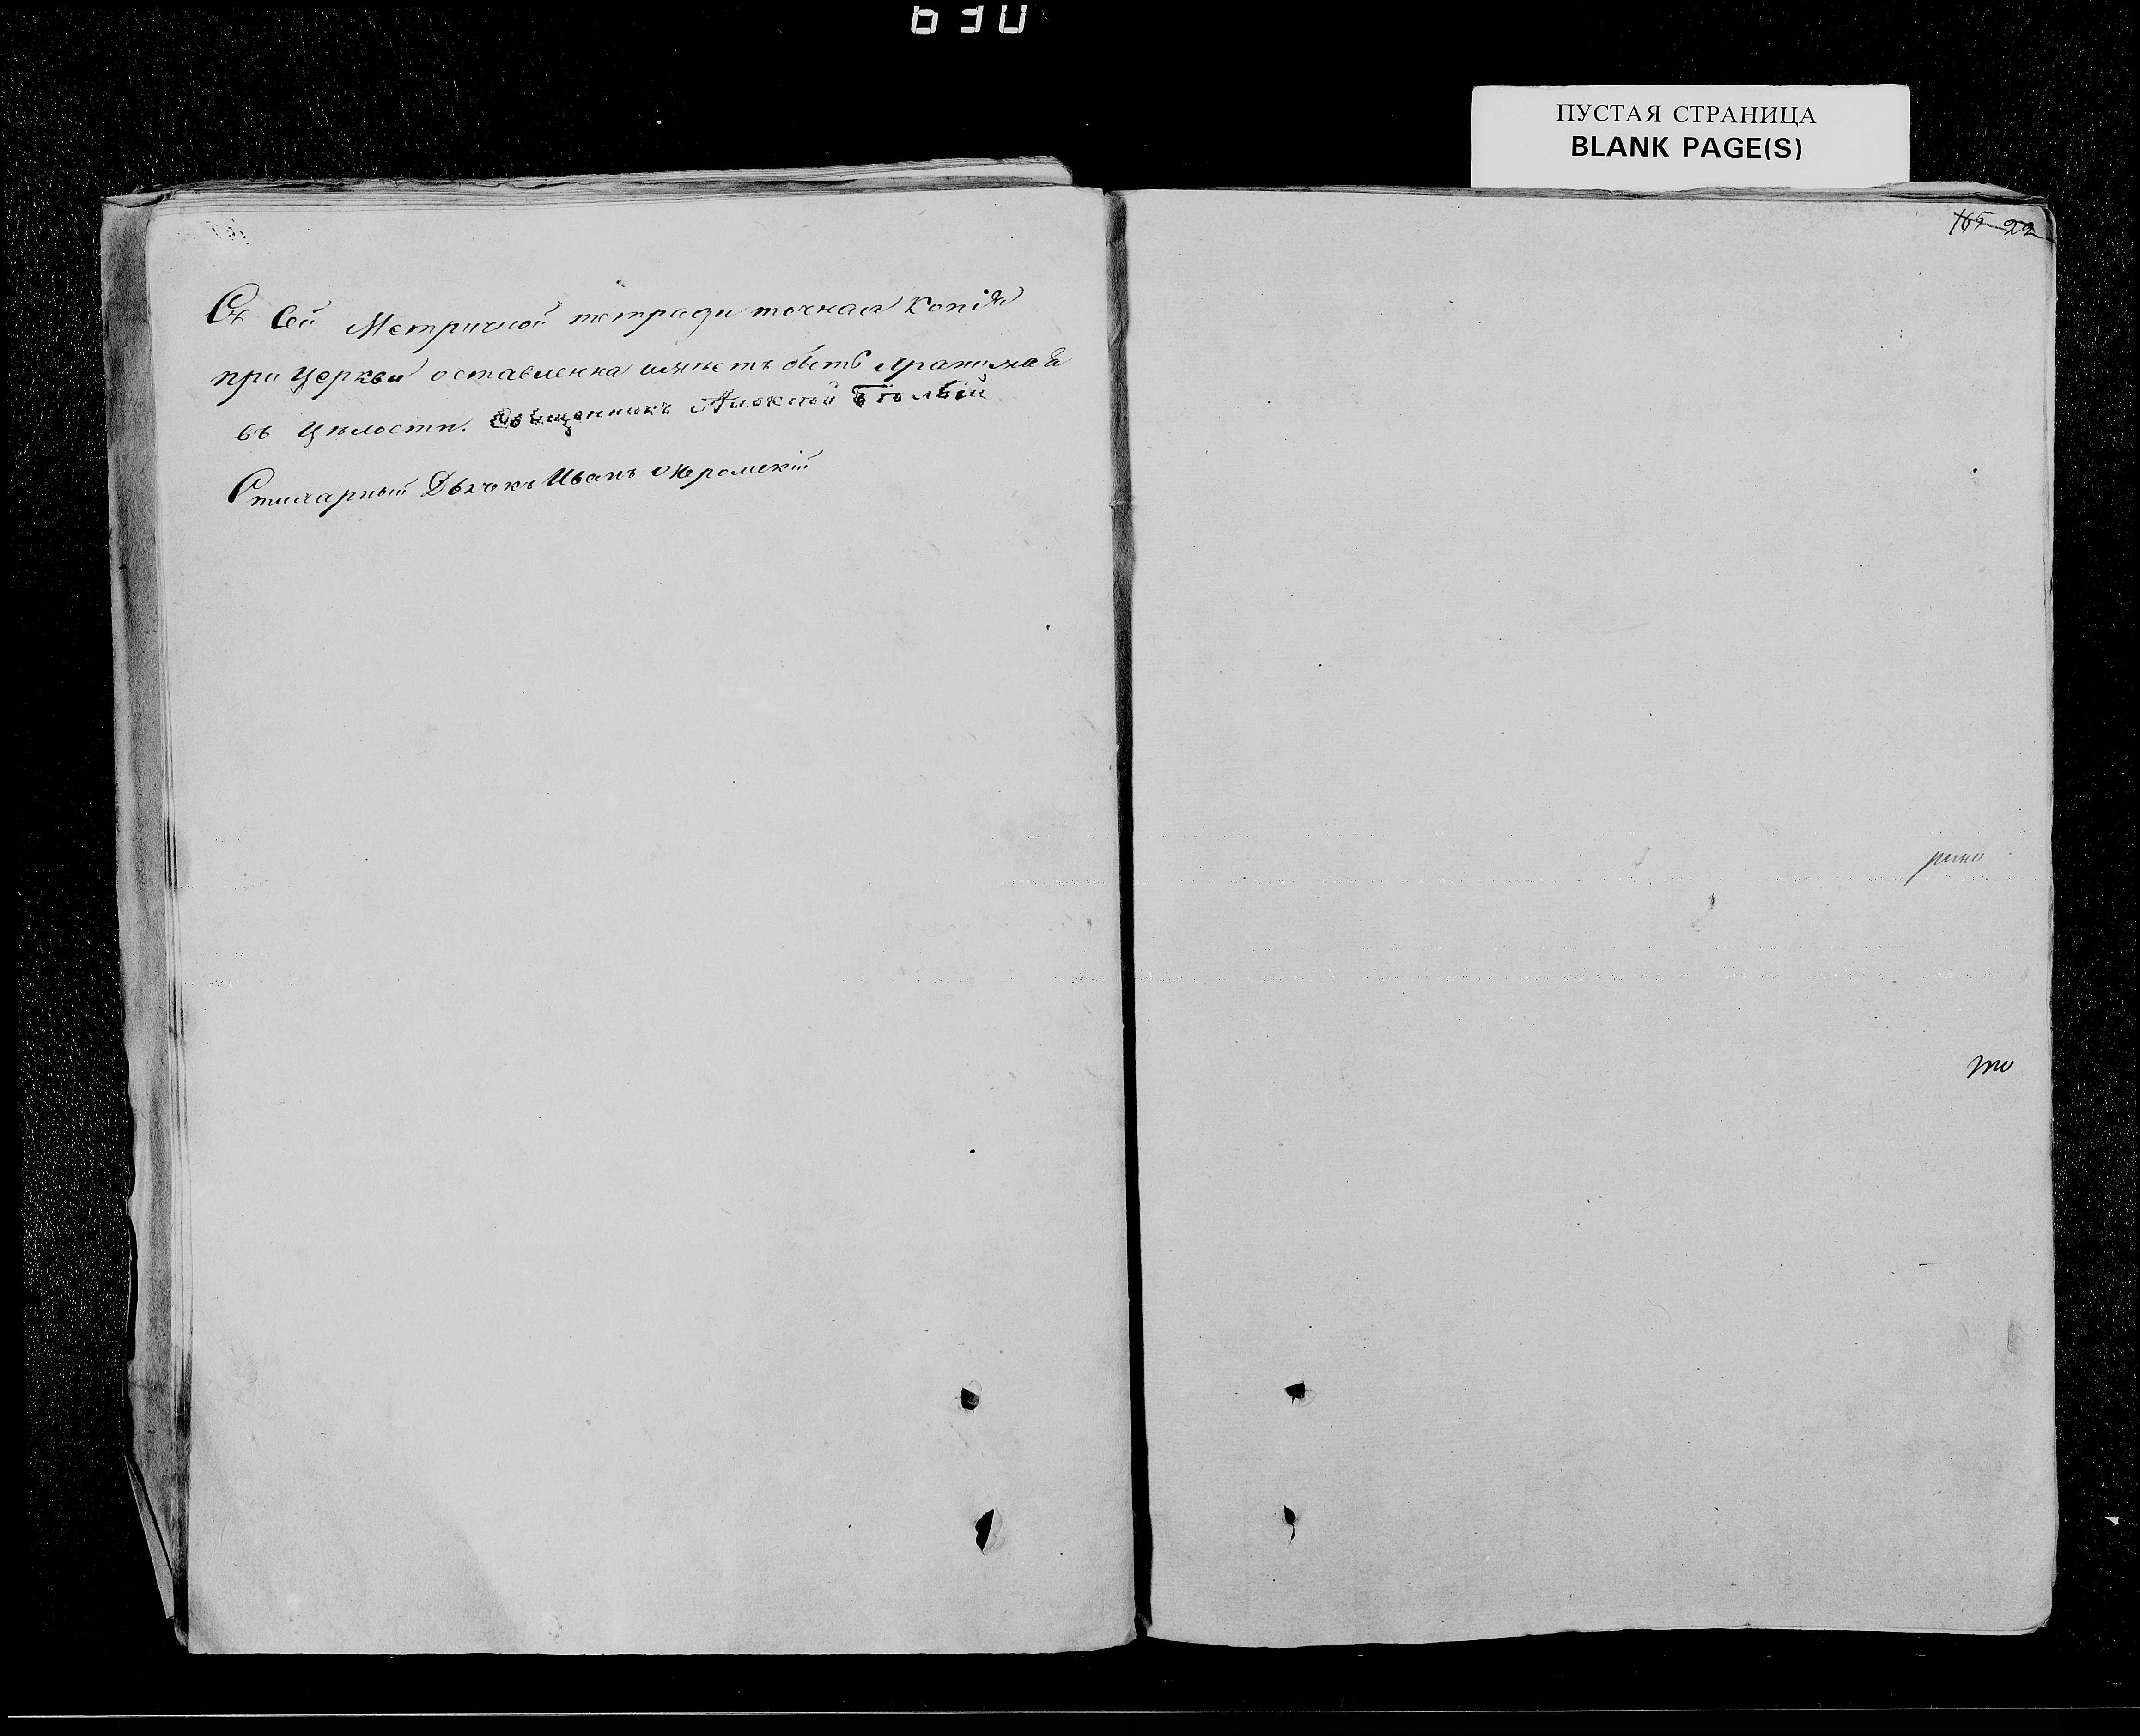 630
ПУСТАЯ СТРАНИЦА
BLANK PAGE(S)
Съ сей Метричной тетради точная копія
при Церкви оставленна имѣетъ быть хранима и
въ цѣлости. Священникъ Алексѣй Бѣлый
Стихарный Дьячокъ Иванъ
165 22
то